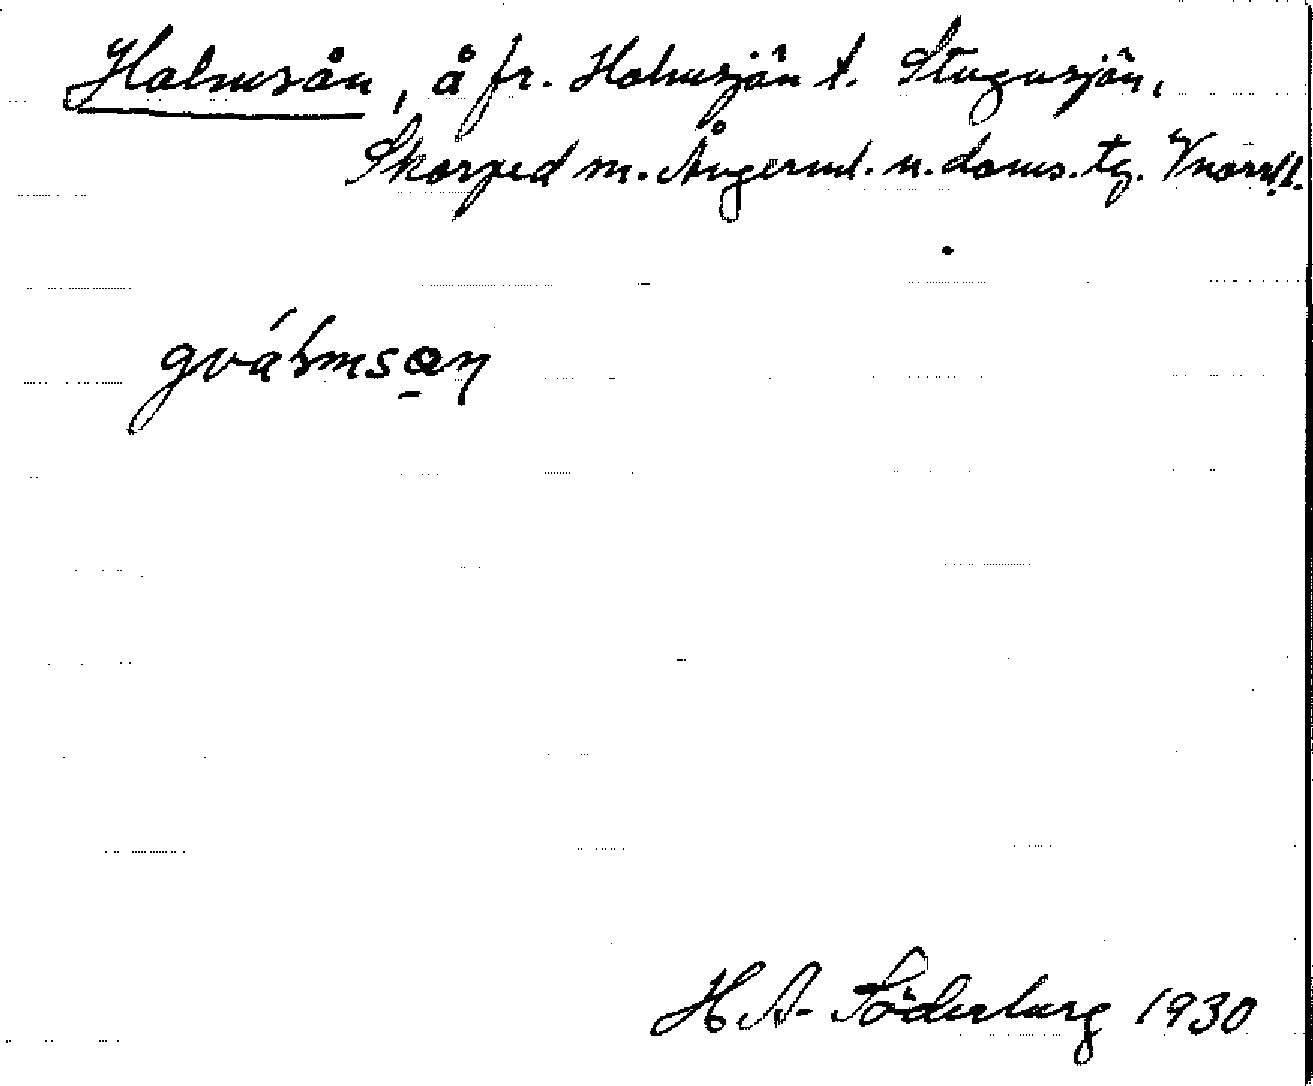 Holmsån, å fr. Holmsjön t. Stugusjön,
Skorped sn. Ångerml. n. doms. tg. Vnorrl.
H. A. Söderberg 1930